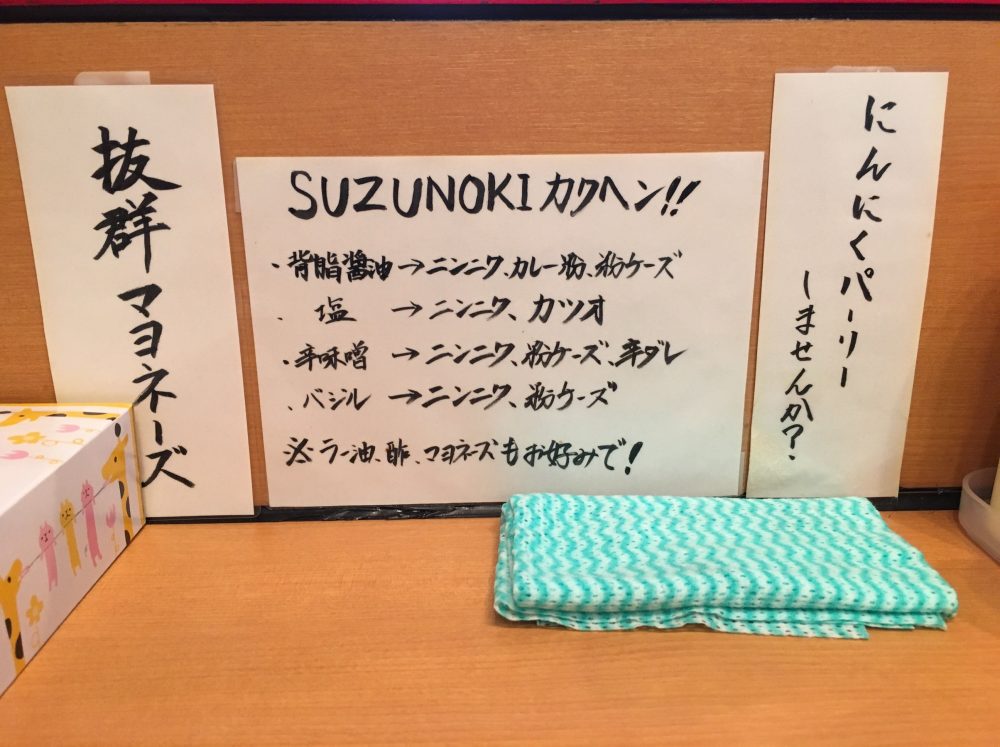 抜群マヨネーズ
SUZUNOKI カクヘン!!
・背脂醤油→ニンニク、カレー粉、粉ケーズ
、塩→ニンニク、カツオ
・辛味噌→ニンニク、粉ケーズ、辛ダレ
、バジル→ニンニク、粉ケーズ
※ラー油、酢、マヨネーズもお好みで!
にんにくパーリー
しませんか?